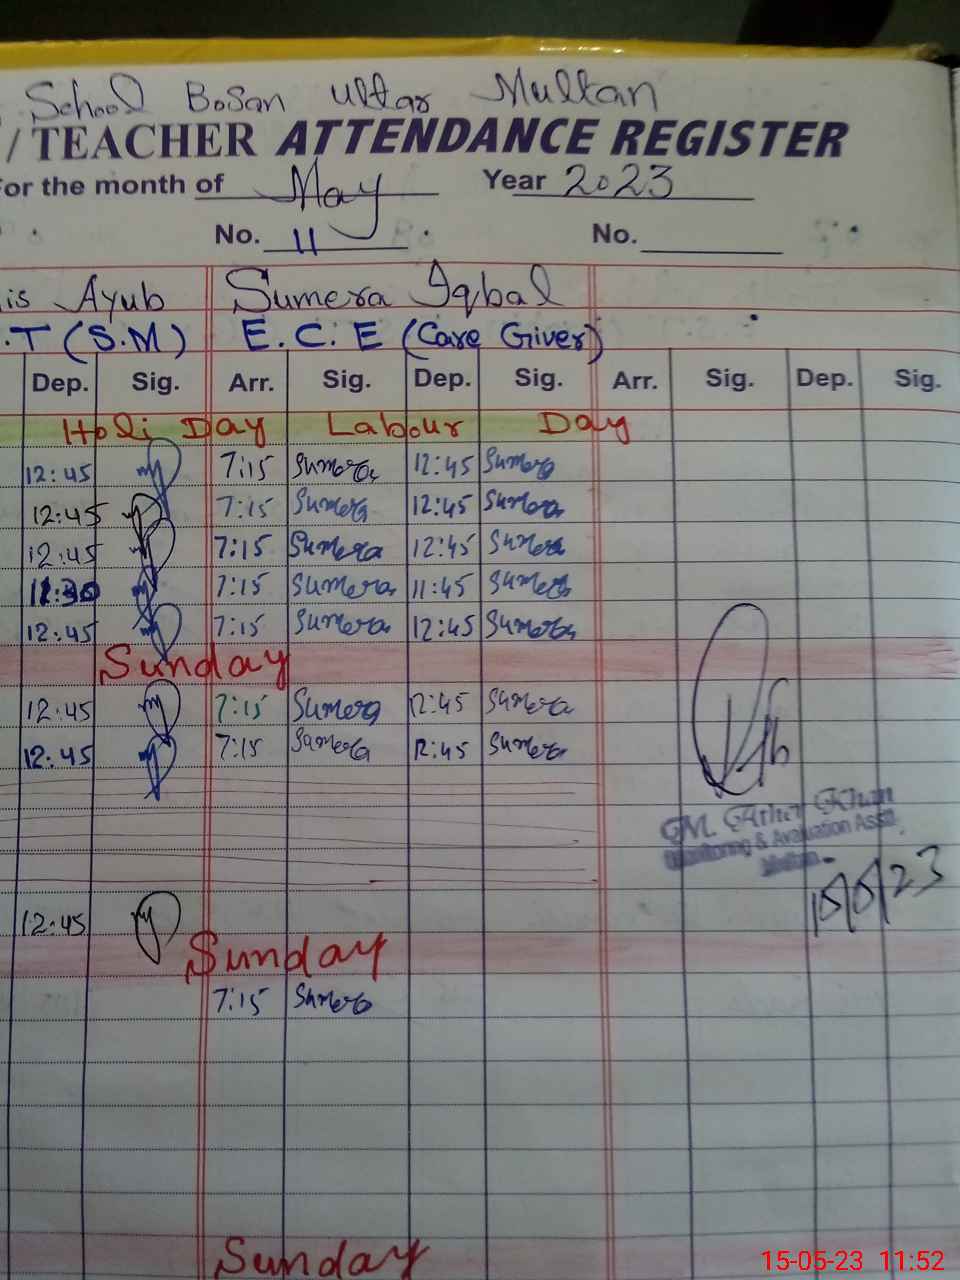 School Bosan Uttar Multan
/ TEACHER ATTENDANCE REGISTER
For the month of May Year 2023
No. 11 No.
is Ayub Sumera Iqbal
.T (S.M) E.C.E (Care Giver)
Dep. Sig. Arr. Sig. Dep. Sig. Arr. Sig. Dep. Sig.
Holi Day Labour Day
12:45 7:15 Sumera 12:45 Sumera
12:45 7:15 Sumera 12:45 Sumera
12:45 7:15 Sumera 12:45 Sumera
11:30 7:15 Sumera 11:45 Sumera
12:45 7:15 Sumera 12:45 Sumera
Sunday
12:45 7:15 Sumera 12:45 Sumera
12:45 7:15 Sumera 12:45 Sumera
M. Ather Khan
Monitoring & Avaluation Asstt.
Multan
15/5/23
12:45
Sunday
7:15 Sumera
Sunday
15-05-23 11:52